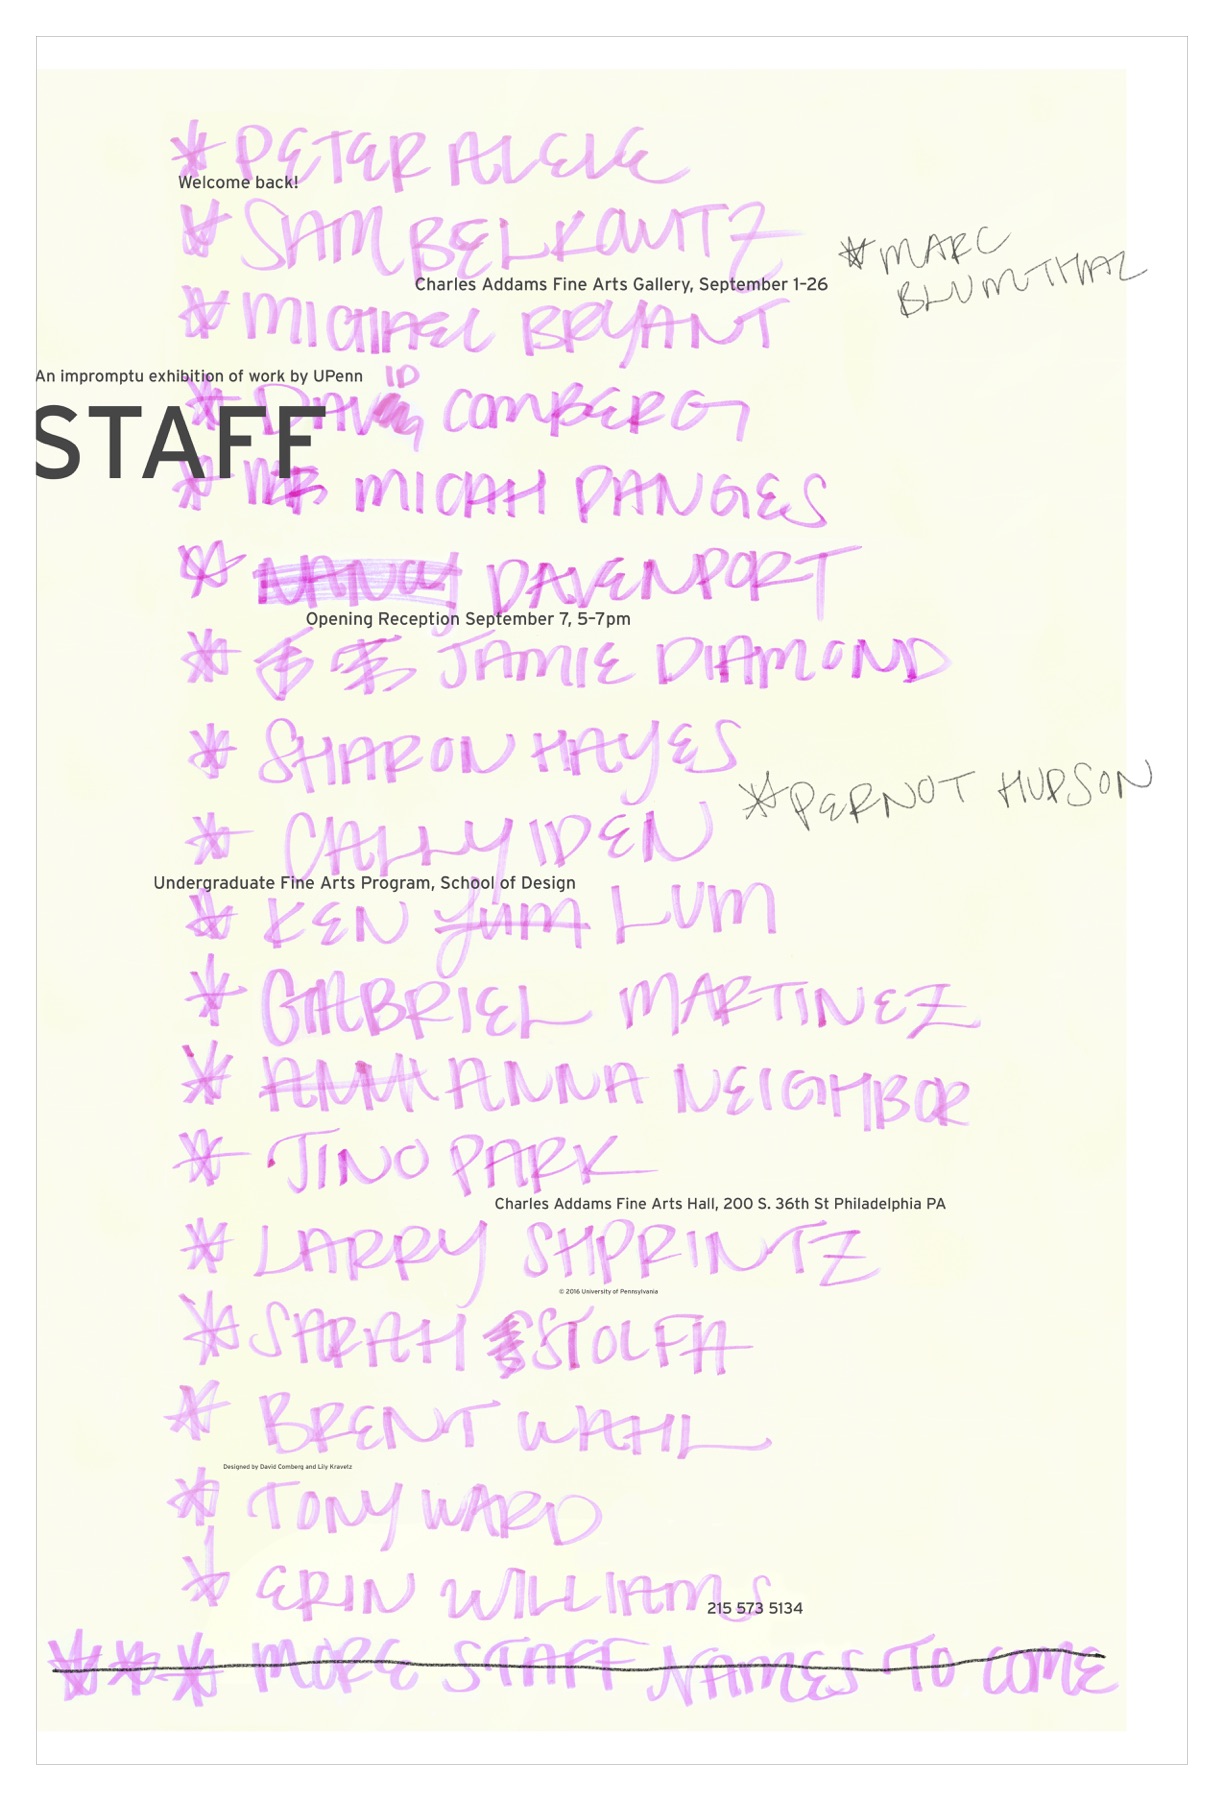 * PETER ALEVE
Welcome back!
* SAM BELKOWITZ
* MARC
BLUMTHAL
Charles Addams Fine Arts Gallery, September 1–26
* MICHAEL BRYANT
An impromptu exhibition of work by UPenn
STAFF
* DAVID COMBERG
* MICAH DANGES
* NANCY DAVENPORT
Opening Reception September 7, 5–7pm
* JAMIE DIAMOND
* SHARON HAYES
* PERNOT HUDSON
* CALLY IDEN
Undergraduate Fine Arts Program, School of Design
* KEN LUM LUM
* GABRIEL MARTINEZ
* ANNA NEIGHBOR
* JINO PARK
Charles Addams Fine Arts Hall, 200 S. 36th St Philadelphia PA
* LARRY SHPRINTZ
© 2016 University of Pennsylvania
* SARAH STOLFA
* BRENT WAHL
Designed by David Comberg and Lily Kravetz
* TONY WARD
* ERIN WILLIAMS
215 573 5134
*** MORE STAFF NAMES TO COME